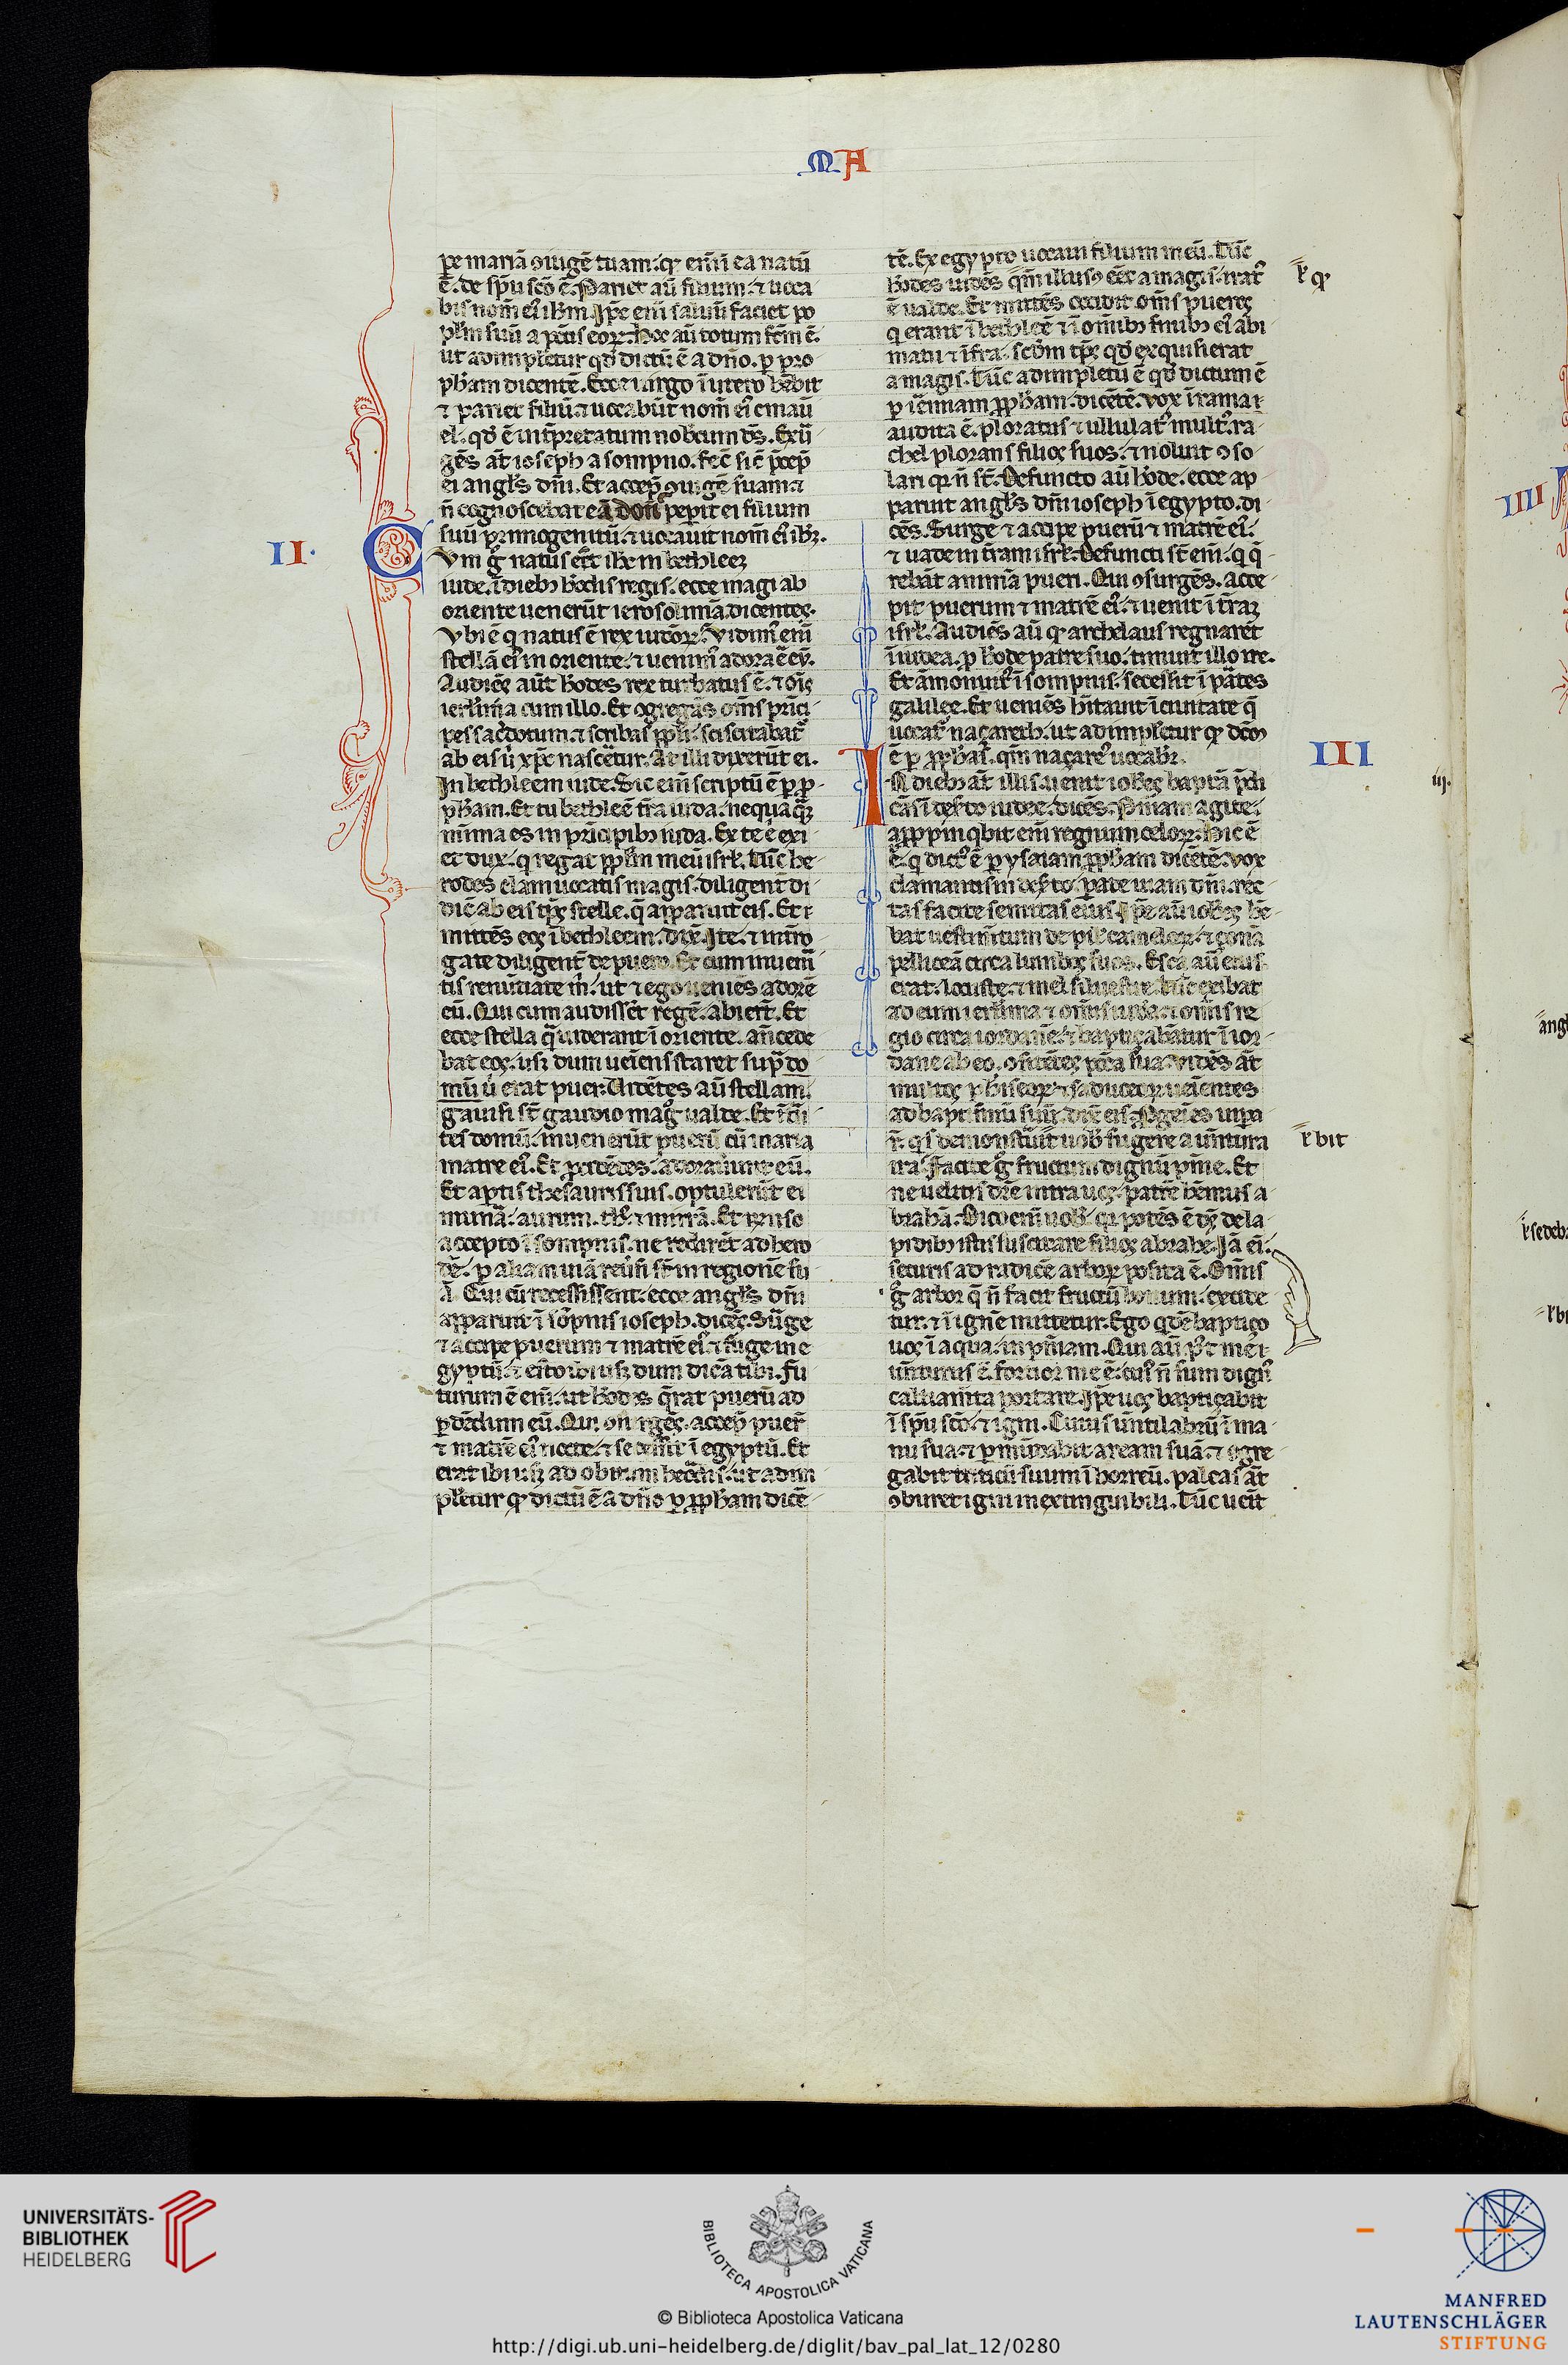 MA
pe mariā ɔiugē tuam. qꝫ enī ī ea natū
ē. de spū scō ē. Pariet aū filium. ⁊ uoca
bis nom̄ eiꝰ ihm̄. Ip̄e enī saluū faciet po
pl̄m suū a pctīs eoꝝ. Hoc aū totum fcm̄ ē.
ut adimpletur qđ dictū ē a dn̄o. p pro
pħam dicentē. Ecce uirgo ī utero hēbit
⁊ pariet filiū. ⁊ uocabūt nom̄ eiꝰ emāu
el. qđ ē int̄pretatum nobcum d̄s. Exū
gēs at̄ ioseph a sompno. fec̄ sic̄ p̄cep̄
ei angl̄s dn̄i. Et accep̄ ɔiugē suam. ⁊
n̄ cognoscebat eā don̄ pepit ei filium
suū primogenitū. ⁊ uocauit nom̄ eiꝰ ihꝫ.
II.
Cvm ḡ natus eēt ihc in bethleeꝫ
iude. ī dieb hodis regis. ecce magi ab
oriente uenerūt ierosolimā. dicenteς.
Vbi ē q natus ē rex iudeoꝝ. Vidimꝰ enī
stellā eiꝰ in oriente. ⁊ uenimꝰ adorare eū.
Audiēς aūt hodes rex turbatus ē. ⁊ oīς
ierl̄ima cum illo. Et ɔgregās om̄s prīci
pes sacdotum. ⁊ scribas ppl̄i. sciscitabat̄
ab eis ū xp̄c nascetur. At illi dixerūt ei.
In bethleem iude. Sic enī scriptū ē p p
pħam. Et tu bethleē t̄ra iuda. nequaq̄ꝫ
minima es in prīcipib iuda. Ex te ē exi
et dux. q regat ppl̄m meū isrl̄. Tūc he
rodes clam uocatis magis. diligent̄ di
dic̄ ab eis tp̄ς stelle. q̄ apparuit eis. Et ī
mittēs eoς ī bethleem. dix̄. Ite. ⁊ intro
gate diligent̄ de puero. Et cum inuenī
tis renūtiate m̄. ut ⁊ ego ueniēs adorē
eū. Qui cum audissēt regē. abier̄t. Et
ecce stella q̄ uiderant ī oriente. an̄cede
bat eoς. usꝫ dum ueiens staret sup̄ do
mū ū erat puer. Videntes aū stellam.
gauisi st̄ gaudio mag̊ ualde. Et ītn̄
tes domū. inuenerūt puerū cū maria
matre eiꝰ. Et pcidētes. adorauunt eū.
Et aptis thesauris suis. optulerūt ei
munā. aurum. thꝰ. ⁊ mirrā. Et rnn̄so
accepto ī sompnis. ne redirēt ad hero
dē. p aliam uiā reūsi st̄ in regionē su
ā. Qui cū recessissent. ecce angl̄s dn̄i
apparuit ī sōpnis ioseph. dicēς. Surge
⁊ accipe puerum ⁊ matrē eiꝰ. ⁊ fuge in e
gyptū. ⁊ esto ibi usꝫ dum dicā tibi. Fu
turum ē enī. ut hodes q̄rat puerū ad
pdēdum eū. Qui ɔsurgēς. accep̄ puer̄
⁊ matrē eiꝰ nocte. ⁊ secessit ī egyptū. Et
erat ibi usꝫ ad obitum herodis. ut adim
pletur qꝫ dictū ē a dn̄o p ppħam dicē
tē. Ex egypto uocaui filium meū. Tūc
hodes uidēs qm̄ illusꝰ eēt a magis. irat̄
ē ualde. Et mittēs occidit om̄s puerς
q erant ī bethleē ⁊ ī om̄ib finib eiꝰ a bi
matu ⁊ ifra. scdm̄ tp̄ς qđ exquisierat
a magis. Tūc adimpletū ē qđ dictum ē
p iēmiam ppħam. dicētē. Vox ī rama
audita ē. ploratus ⁊ ullulatꝰ multꝰ. ra
chel plorans filioς suos. ⁊ noluit ɔso
lari qꝫ n̄ st̄. Defuncto aū hode. ecce ap
paruit angl̄s dn̄i ioseph ī egypto. di
cēs. Surge ⁊ accipe puerū ⁊ matrē eiꝰ.
⁊ uade in t̄ram isrl̄. Defuncti st̄ enī. q q̄
rebāt animā pueri. Qui ɔsurgēs. acce
pit puerum ⁊ matrē eiꝰ. ⁊ uenit ī t̄raꝫ
isrl̄. Audiēs aū qꝫ archelaus regnaret
ī iudea. p hode patre suo. timuit illo ire.
Et āmonitꝰ ī sompnis. secessit ī ptes
galilee. Et ueniēs hitauit ī ciuitate q̄
uocat̄ naçareth. ut adimpletur qꝫ dcm̄
ē p ppħas. qm̄ naçareꝰ uocabit̄.
III
IN dieb at̄ illis. uenit ioħes baptā p̄di
cās ī deserto iudee. dicēs. Pniam agite.
appinqbit enī regnum celoꝝ. Hic ē
ē. q dictꝰ ē p ysaiam ppħam dicētē. Vox
clamantis in deserto. pate uiam dn̄i. rec
tas facite semitas eius. Ip̄e aū iohes hē
bat uestimtum de pilꝰ cameloꝝ. ⁊ çonā
pelliceā circa lumboς suos. Esca aū eius
erat. locuste. ⁊ mel siluestre. Tūc exibat
ad eum ierl̄ima ⁊ om̄is iudea. ⁊ om̄is re
gio circa iordanē. ⁊ baptiçabātur ī ior
dane ab eo. ɔfitēteς pcca sua. Vidēs at̄
multoς phiseoꝝ ⁊ saduceoꝝ ueientes
ad baptismū suū. dix̄ eis. Progeies uipa
ꝝ. qs demonstuit uob fugere a uentura
ira. Facite ḡ fructum dignū pnie. Et
ne uelitis dicē intra uoς. patrē hēmus a
brahā. Dico enī uob. qꝫ potēs ē d̄s de la
pidib istis suscitare filioς abrahe. Iā ei
securis ad radicē arboꝝ posita ē. Om̄is
ḡ arbor q̄ n̄ facit fructū bonum. excide
tur. ⁊ ī ignē mittetur. Ego qde baptiço
uoς ī aqua. in pniam. Qui aū pꝰt me
uenturus ē. fortior me ē. cuiꝰ n̄ sum dignꝰ
calciamta portare. Ip̄e uoς baptiçabit
ī spū sco. ⁊ igni. Cuius uentilabrū ī ma
nu sua. ⁊ pmūdabit aream suā. ⁊ ɔgre
gabit triticū suum ī horreū. paleas at̄
ɔburet igni inextinguibili. Tūc uenit
qꝫ
bit
iij.
IIII
UNIVERSITÄTS-
BIBLIOTHEK
HEIDELBERG
BIBLIOTECA APOSTOLICA VATICANA
© Biblioteca Apostolica Vaticana
http://digi.ub.uni-heidelberg.de/diglit/bav_pal_lat_12/0280
MANFRED
LAUTENSCHLÄGER
STIFTUNG